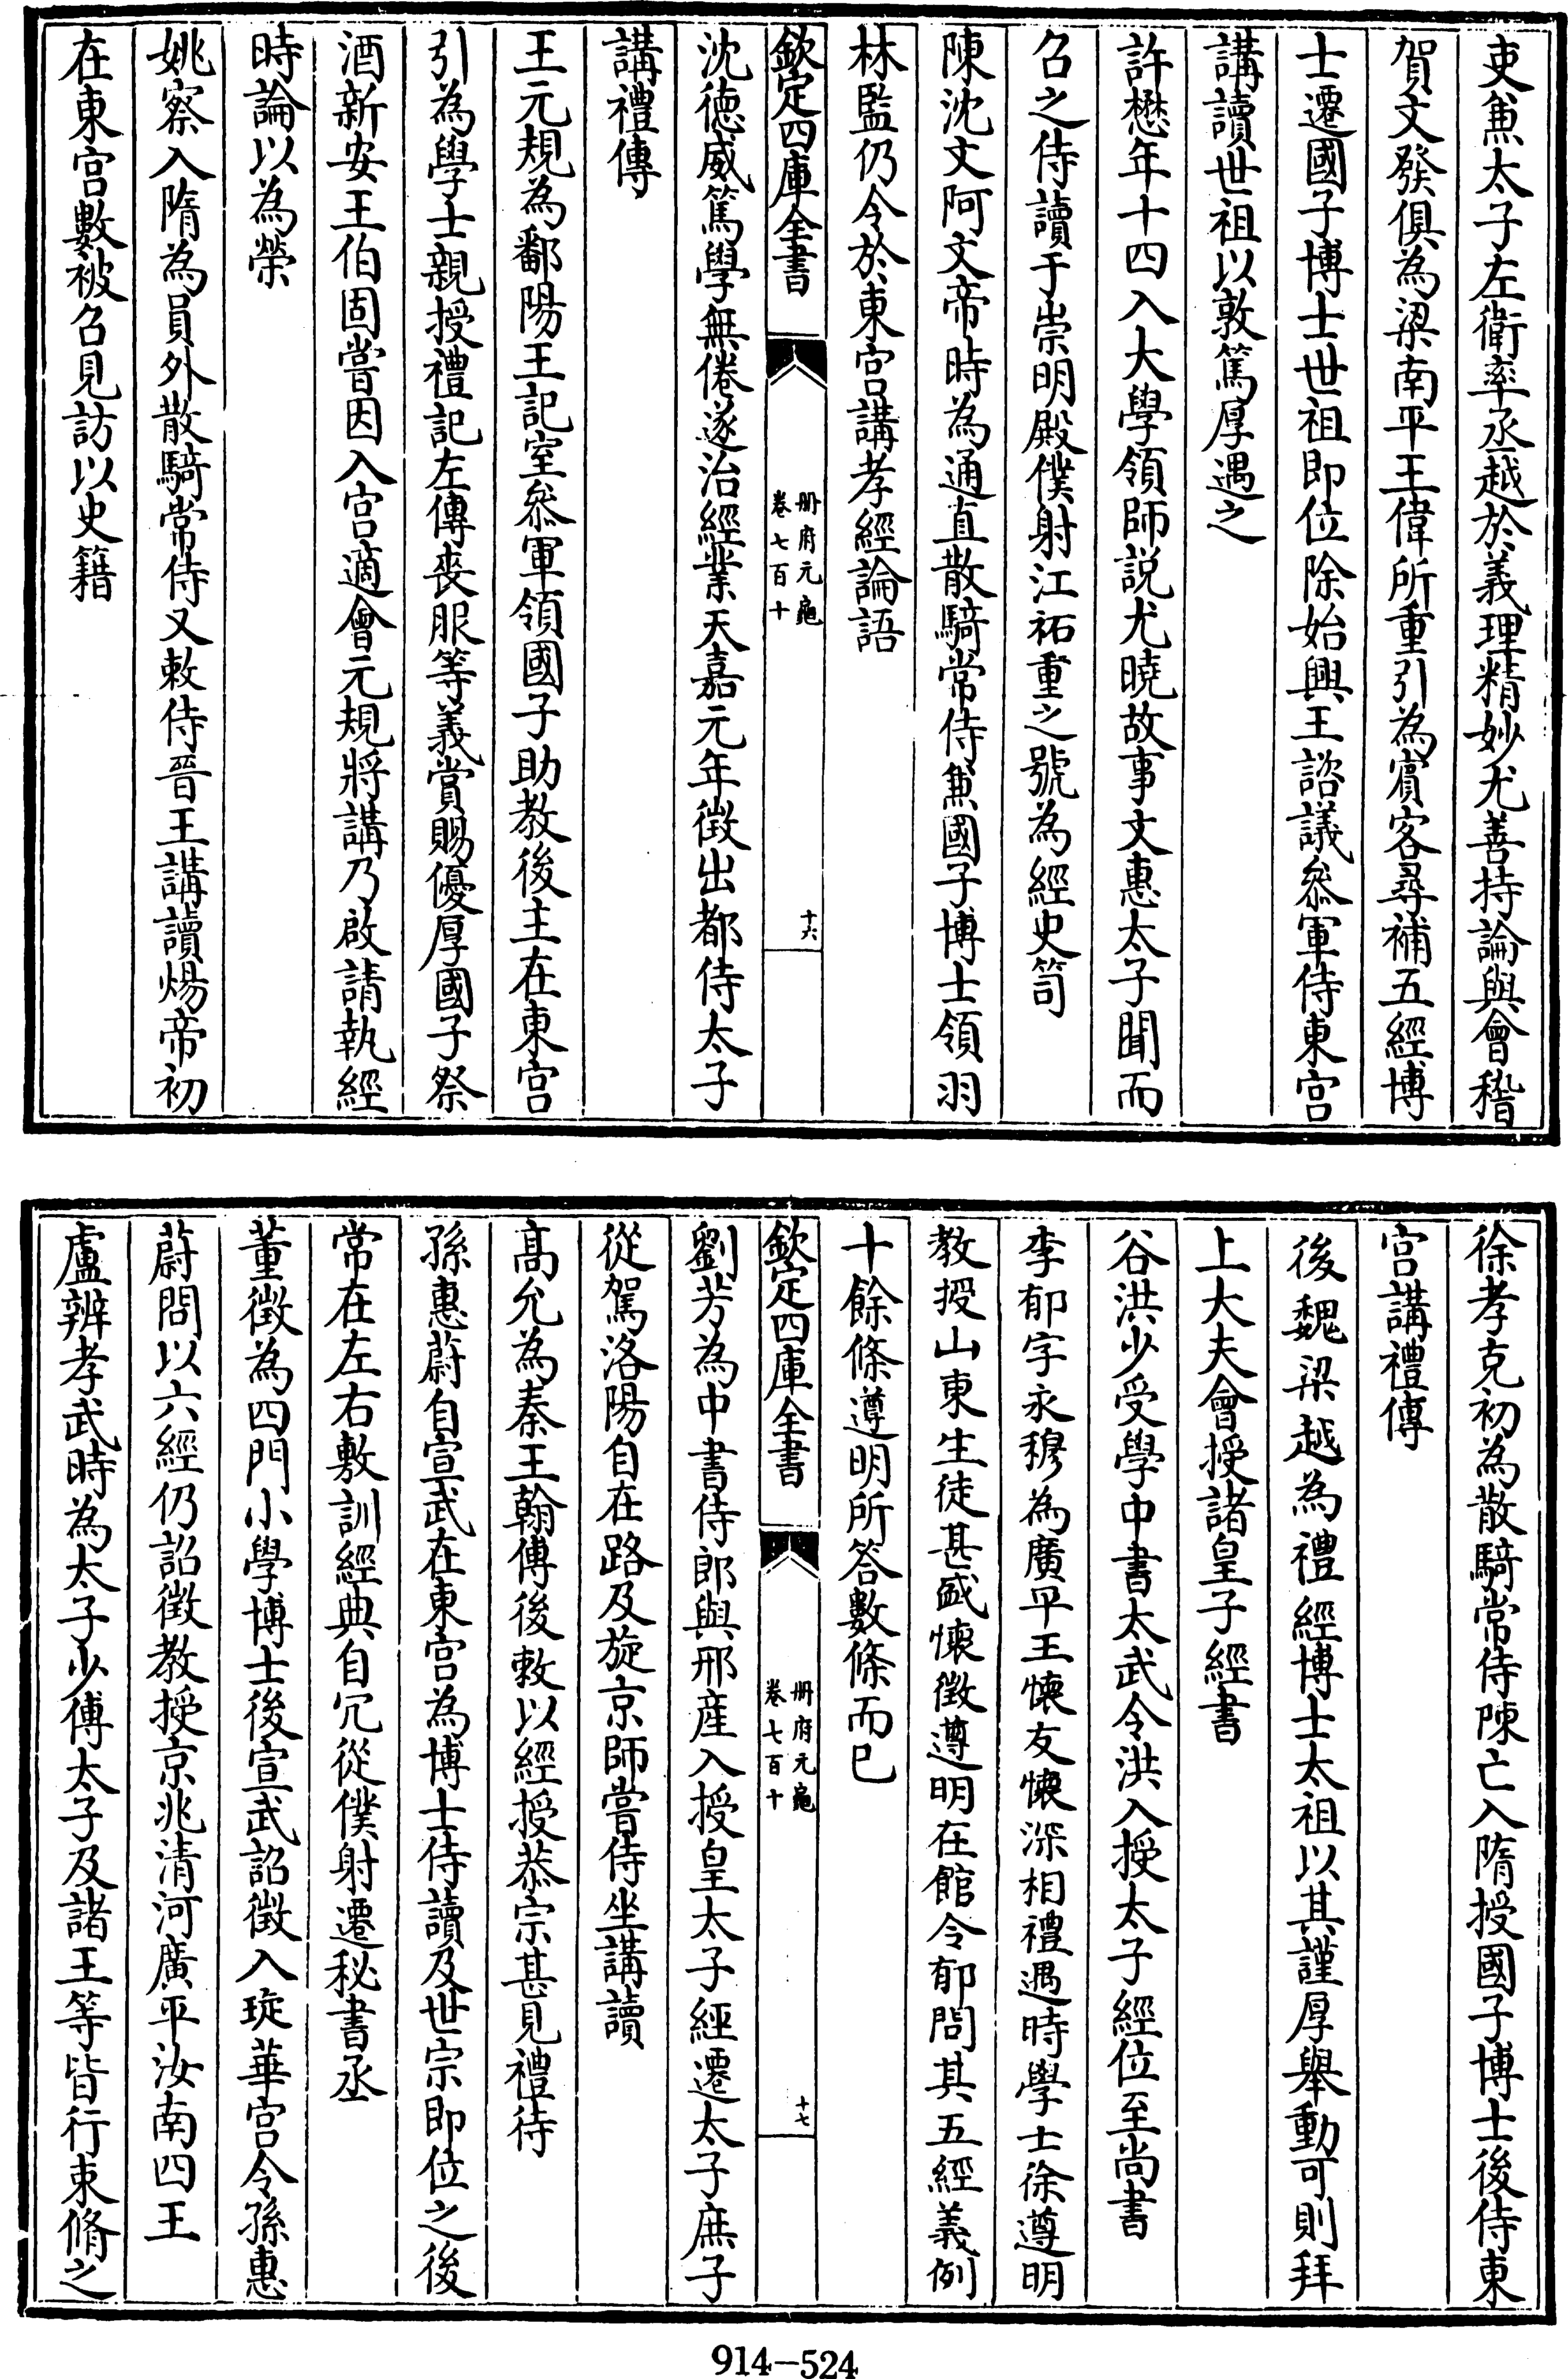 吏兼太子左衛率丞越於義理精妙尤善持論與會稽
賀文發俱為梁南平王偉所重引為賓客尋補五經博
士遷國子博士世祖即位除始興王諮議叅軍侍東宫
講讀世祖以敦篤厚遇之
許懋年十四入大學領師說尤曉故事文惠太子聞而
召之侍讀于崇明殿僕射江祏重之號為經史笥
陳沈文阿文帝時為通直散騎常侍兼國子博士領羽
林監仍令於東宫講孝經論語
欽定四庫全書
冊府元龜
卷七百十
十六
沈德威篤學無倦遂治經業天嘉元年徵出都侍太子
講禮傳
王元規為鄱陽王記室叅軍領國子助教後主在東宫
引為學士親授禮記左傳喪服等義賞賜優厚國子祭
酒新安王伯固嘗因入宫適會元規將講乃啟請執經
時論以為榮
姚察入隋為員外散騎常侍又敕侍晉王講讀煬帝初
在東宫數被召見訪以史籍
徐孝克初為散騎常侍陳亡入隋授國子博士後侍東
宫講禮傳
後魏梁越為禮經博士太祖以其謹厚舉動可則拜
上大夫會授諸皇子經書
谷洪少受學中書太武令洪入授太子經位至尚書
李郁字永穆為廣平王懐友懐深相禮遇時學士徐遵明
教授山東生徒甚盛懐徵遵明在館令郁問其五經義例
十餘條遵明所答數條而已
欽定四庫全書
冊府元龜
卷七百十
十七
劉芳為中書侍郎與邢産入授皇太子經遷太子庶子
從駕洛陽自在路及旋京師嘗侍坐講讀
高允為秦王翰傅後敕以經授恭宗甚見禮待
孫惠蔚自宣武在東宫為博士侍讀及世宗即位之後
常在左右敷訓經典自冗從僕射遷秘書丞
董徵為四門小學博士後宣武詔徵入琁華宫令孫惠
蔚問以六經仍詔徵教授京兆清河廣平汝南四王
盧辨孝武時為太子少傅太子及諸王等皆行束脩之
914-524